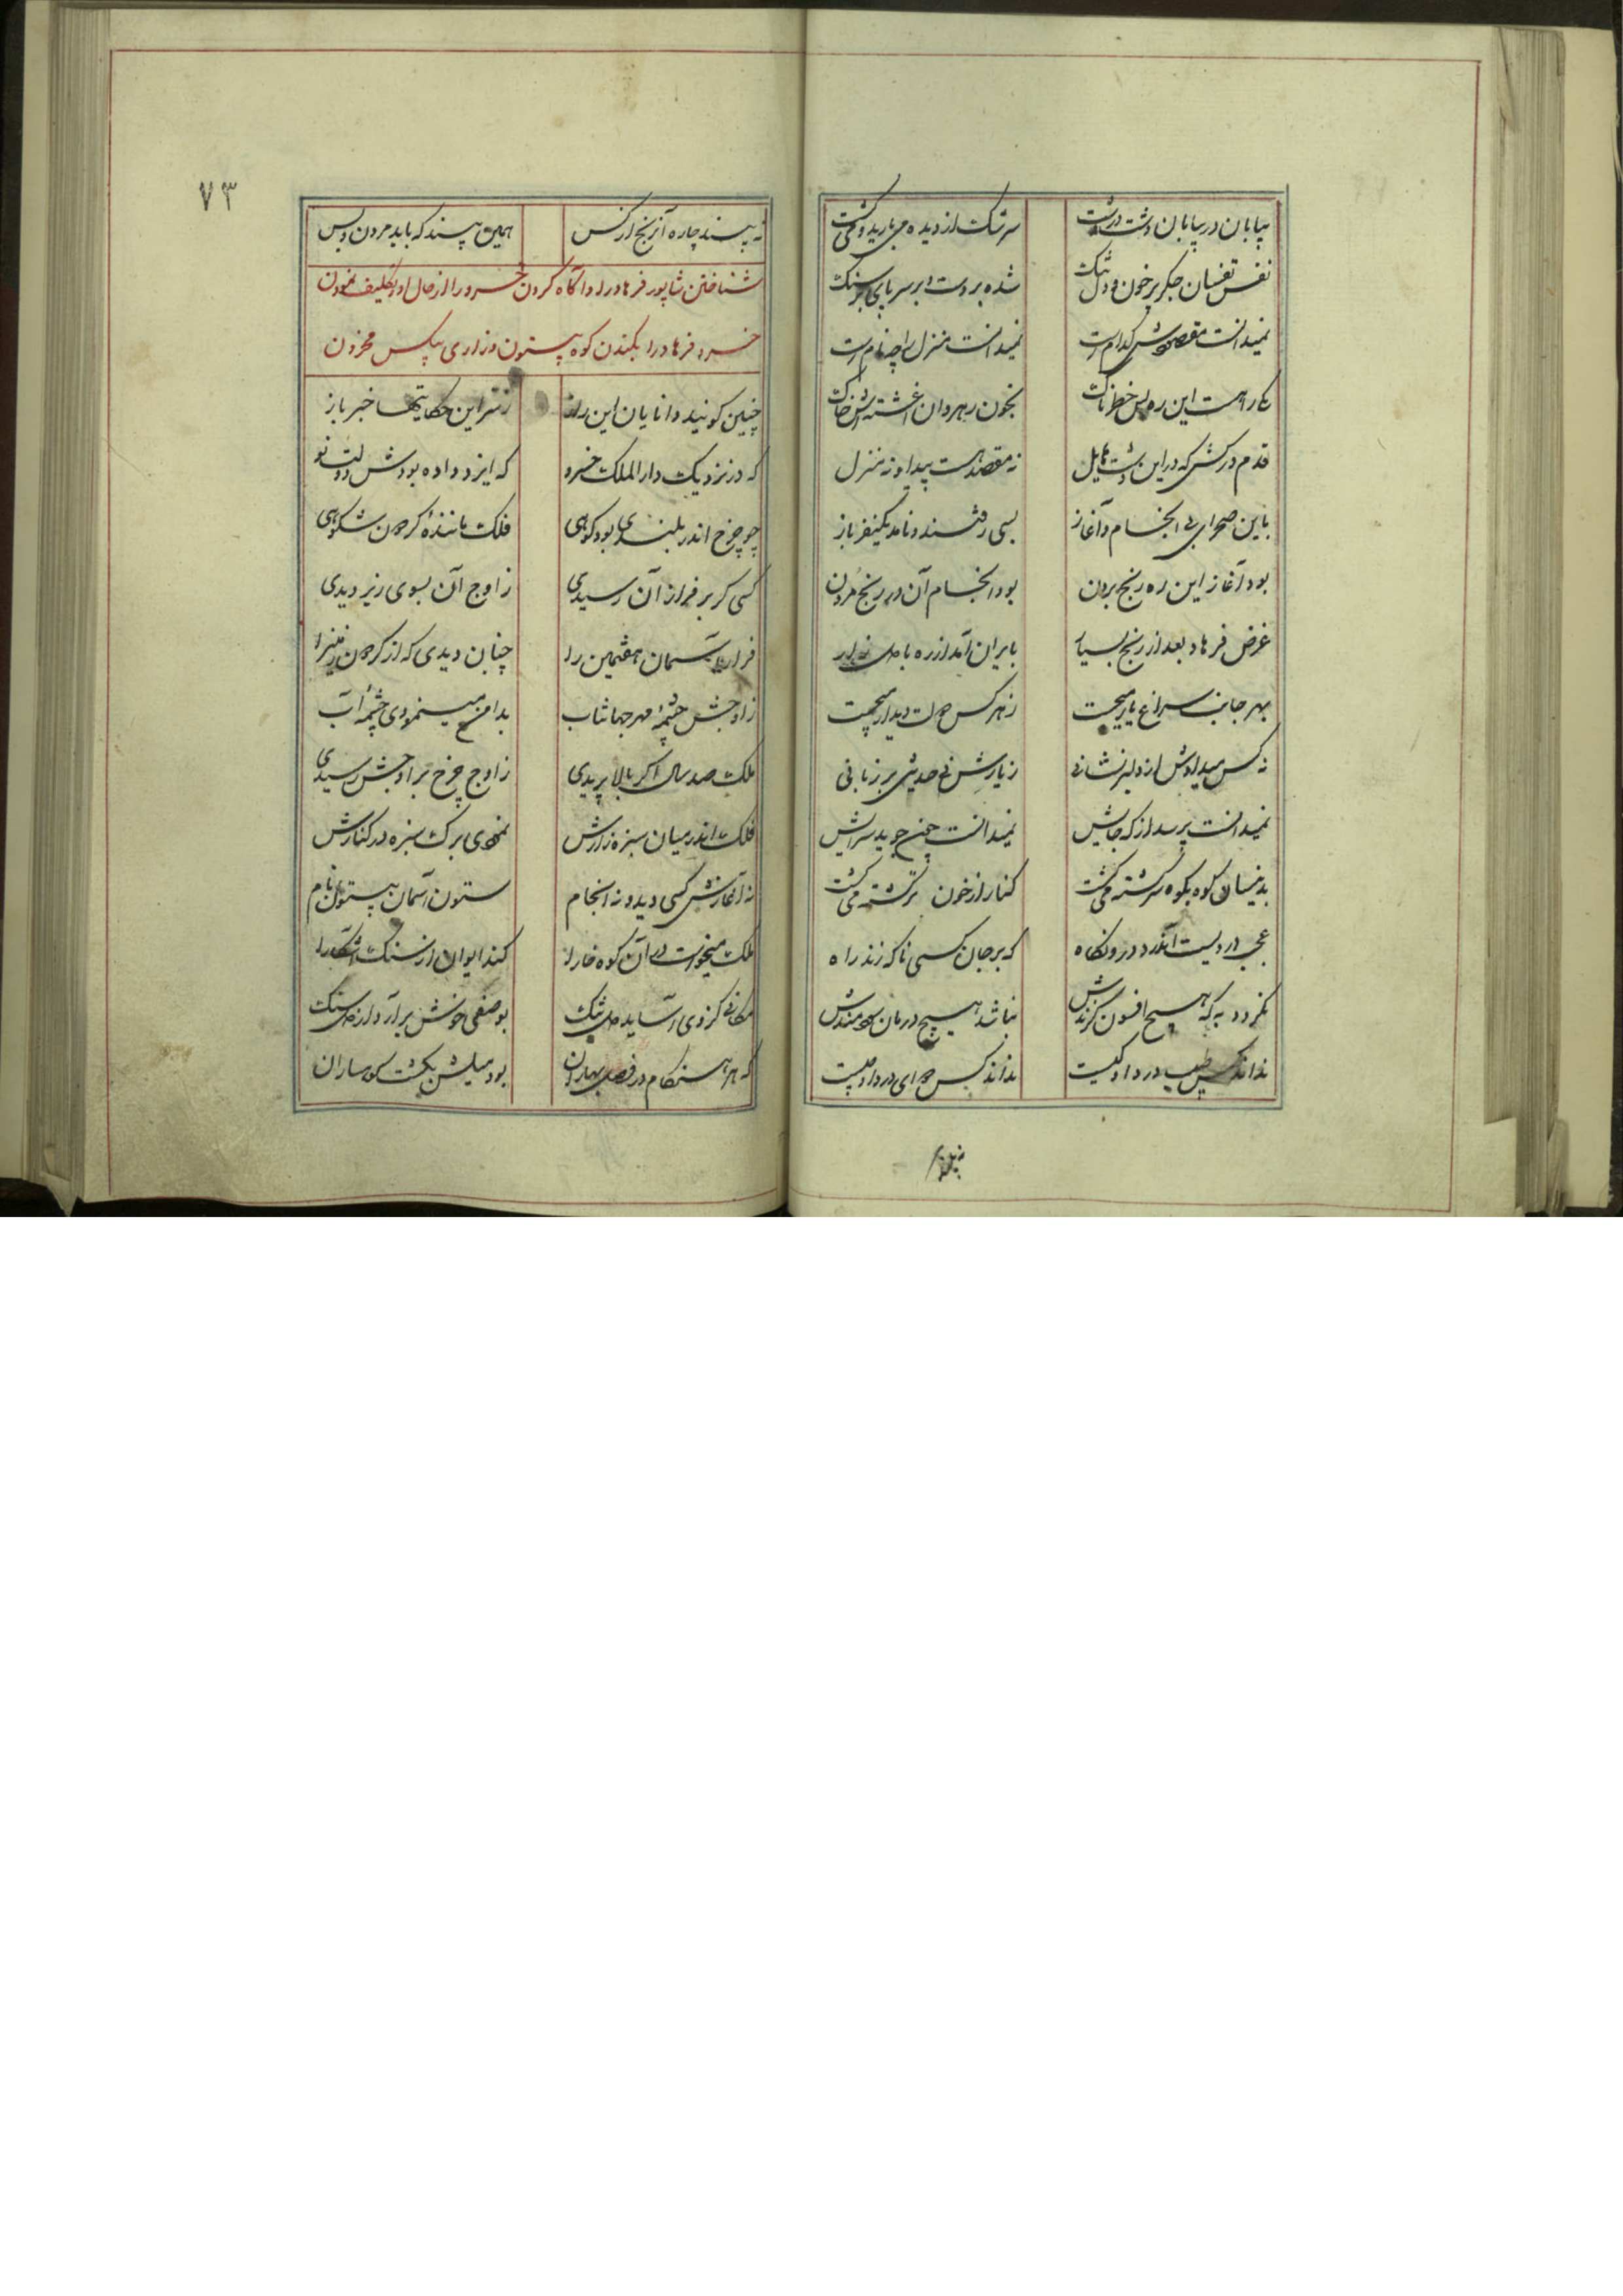 بیابان در بیابان دشت در دشت سرشک از دیده می بارید و می گشت
نفس تفسان جگر پر خون و دل تنگ شده بر دست و بر سر پای بر سنگ
نمیدانست مقصودش کدام است نمیدانست منزل را چه نام است
که راهست این ره بس خطرناک بخون رهروان آغشته اش خاک
قدم در کش که در این دشت هایل نه مقصد هست پیدا و نه منزل
باین صحرای بی انجام و آغاز بسی رفتند و نامد یکنفر باز
بود آغاز این ره رنج بردن بود انجام آن در رنج مردن
غرض فرهاد بعد از رنج بسیار بایران آمد از ره با دل زار
بهر جانب سراغ یار میجست ز هر کس دولت دیدار میجست
نه کس میدادش از دلبر نشانی ز یارش نی حدیثی بر زبانی
نمیدانست پرسد از که جایش نمیدانست چون جوید سرایش
بدینسان کوه بکوه سرگشته می گشت کنار از خون تر گشته می گشت
عجب دردیست اندر درونگاه که بر جان کسی ناگه زند راه
نگردد به که هیچ افسون گزندش نباشد هیچ درمان سودمندش
نداند کس طبیب درد او کیست نداند کس دوای درد او چیست
نه بیند چاره آن رنج از کس همین بیند که باید مردن و بس
شناختن شاپور فرهاد را و آگاه کردن خسرو را از حال او و تکلیف نمودن
خسرو فرهاد را بکندن کوه بیستون و زاری بیکس محزون
چنین گویند دانایان این راز ز سر این حکایتها خبر باز
که در نزدیک دار الملک خسرو که ایزد داده بودش دولت نو
چو چرخ اندر بلندی بود کوهی فلک مانندهٔ گردون شکوهی
کسی کر بر فراز آن رسیدی ز اوج آن بسوی زیر دیدی
فراز آسمان هفتمین را چنان دیدی که از گردون زمین را
ز اوجش چشمهٔ مهر جهانتاب بدامن مینمودی چشمهٔ آب
ملک صد سال اگر بالا پریدی ز اوج چرخ بر اوجش رسیدی
فلک اندر میان سبزه زارش نمودی برگ سبزه در کنارش
نه آغازش کسی دید و نه انجام ستون آسمان بیستون نام
ملک میخواست در آن کوه خارا کند ایوان از سنگ آشکارا
مکانی کز وی آساید دل تنگ بوصفی خوش بر آرد از دل سنگ
که هر هنگام در فصل بهاران بود میلش بگشت کوهساران
۷۳